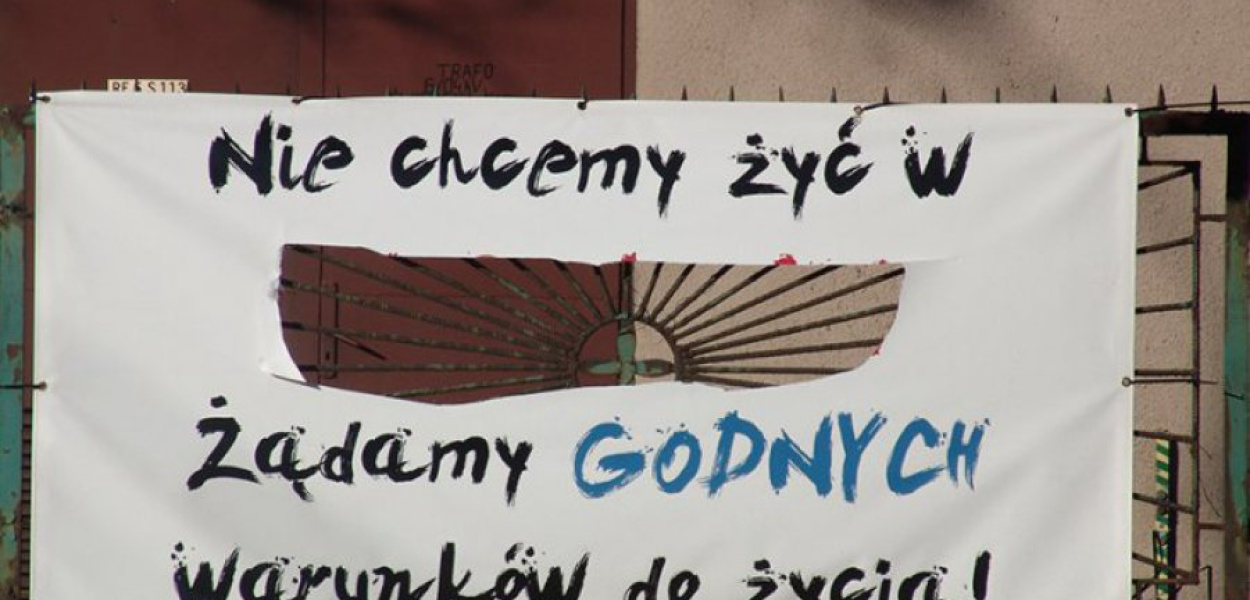 RE S S113
TRAFO
Nie chcemy żyć w
Żądamy GODNYCH
warunków do życia!